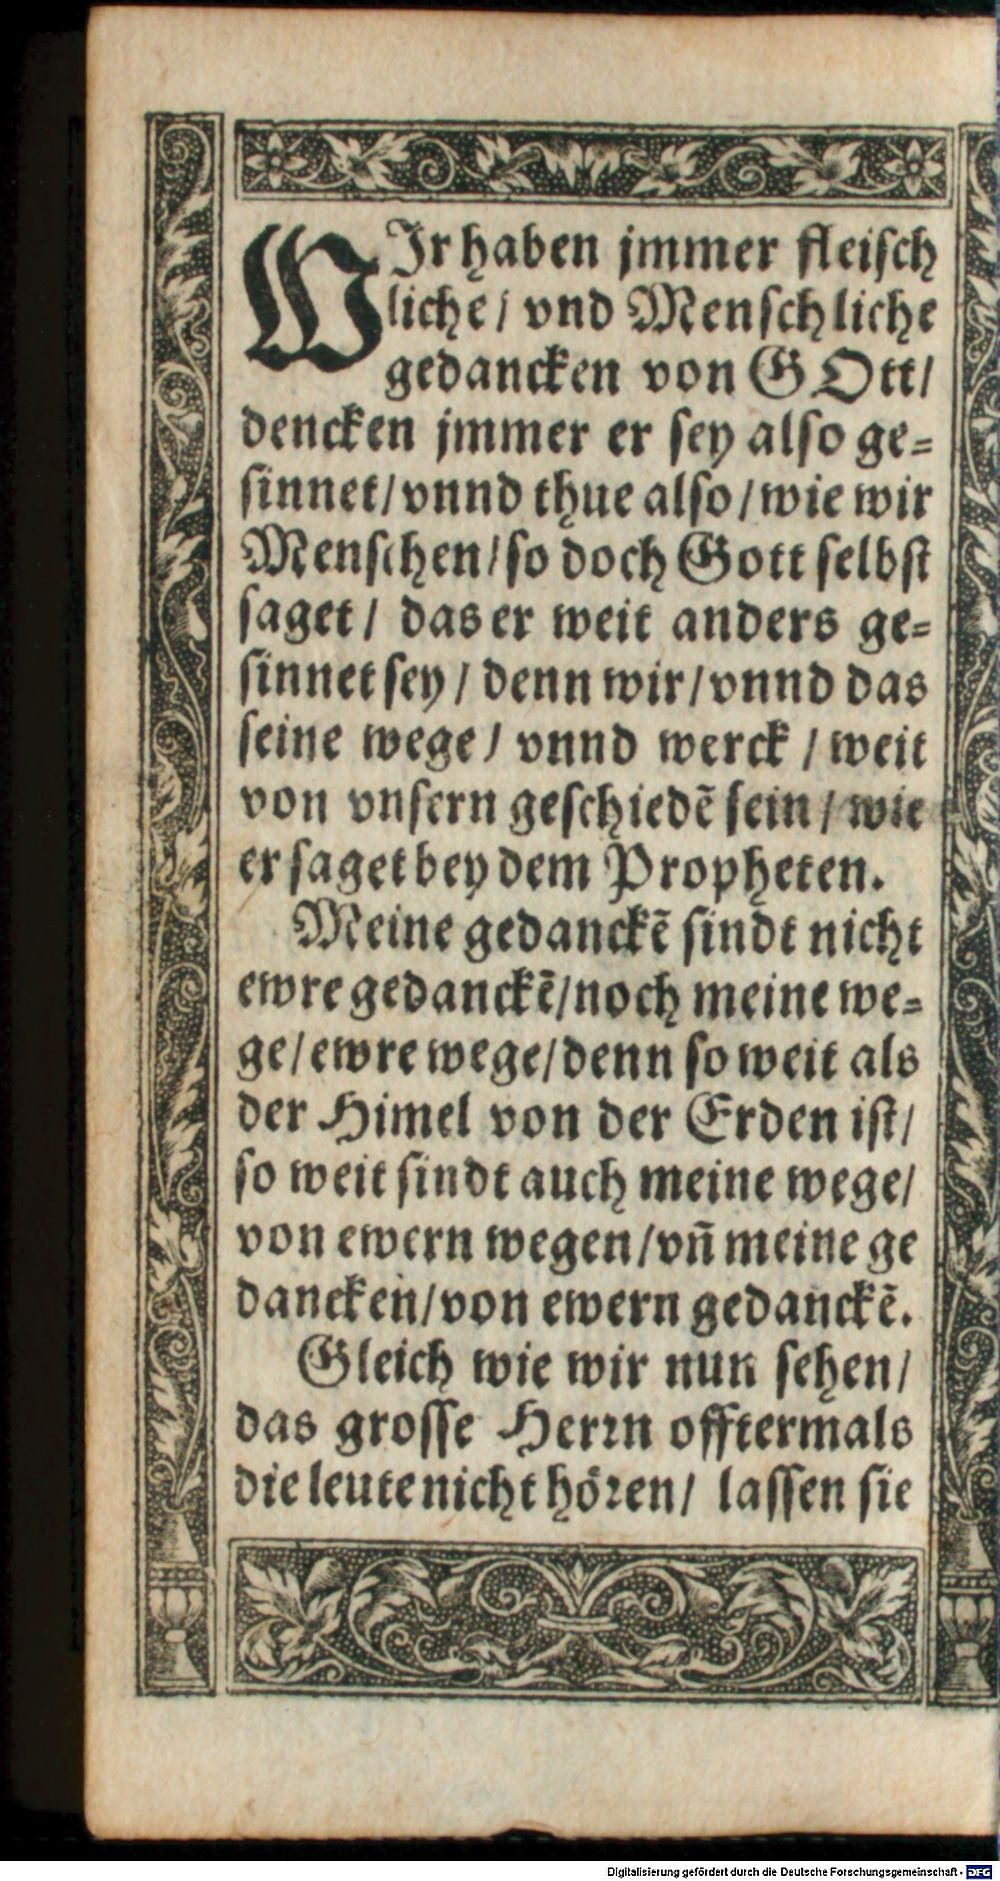 WIr haben jmmer fleiſch
liche / vnd Menſchliche
gedancken von GOtt /
dencken jmmer er ſey alſo ge⸗
ſinnet / vnnd thue alſo / wie wir
Menſchen / ſo doch Gott ſelbſt
ſaget / das er weit anders ge⸗
ſinnet ſey / denn wir / vnnd das
ſeine wege / vnnd werck / weit
von vnſern geſchiedē ſein / wie
er ſaget bey dem Propheten.
Meine gedanckē ſindt nicht
ewre gedanckē / noch meine we⸗
ge / ewre wege / denn ſo weit als
der Himel von der Erden iſt /
ſo weit ſindt auch meine wege /
von ewern wegen / vn̄ meine ge
dancken / von ewern gedanckē.
Gleich wie wir nun ſehen /
das groſſe Herꝛn offtermals
die leute nicht hoͤꝛen / laſſen ſie
Digitalisierung gefördert durch die Deutsche Forschungsgemeinschaft - DFG